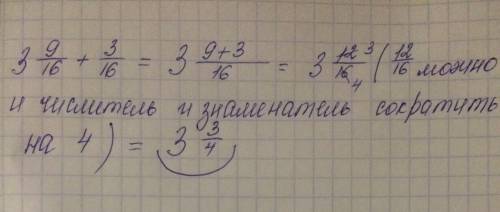 3 9/16 + 3/16 = 3 9+3/16 = 3 12/16 3/4 ( 12/16 можно
и числитель и знаменатель сократить
на 4 ) = 3 3/4